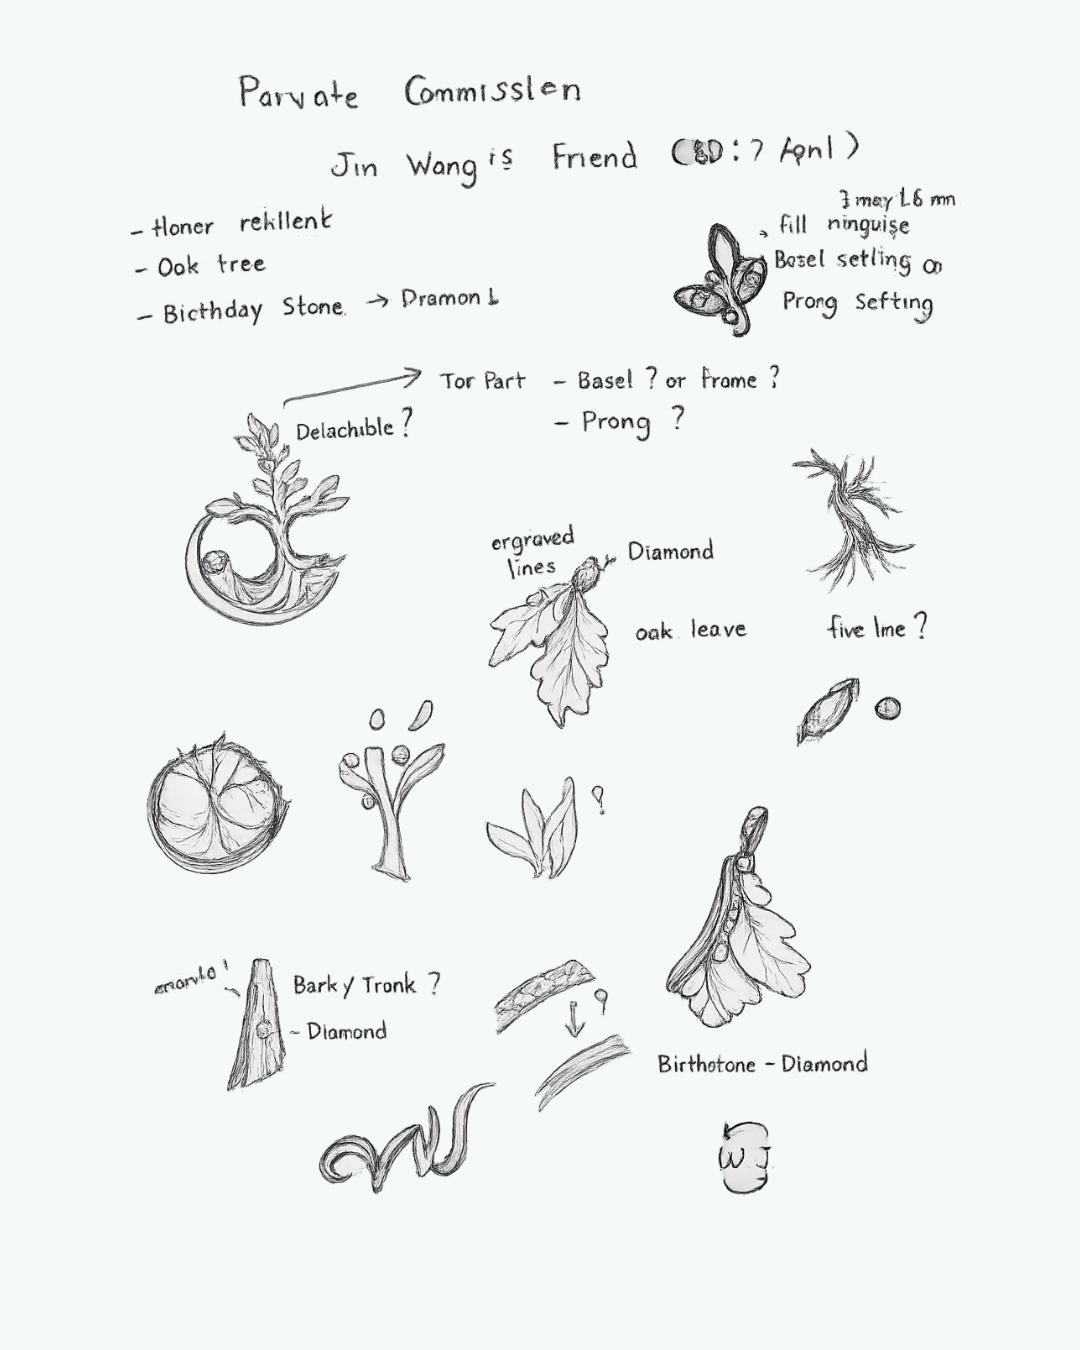 Parvate Commisslen
Jin Wang is Friend : 7
- Honer rekllent
- Oak tree
- Bicthday Stone. → Dramon L
may 1.6 mn
fill ninguise
Basel setling
Prong Sefting
Tor Part - Basel ? or frame ?
Delachible ?
- Prong ?
ergraved
lines
Diamond
oak leave
five lme ?
?
Bark y Tronk ?
- Diamond
?
Birthstone - Diamond
W J